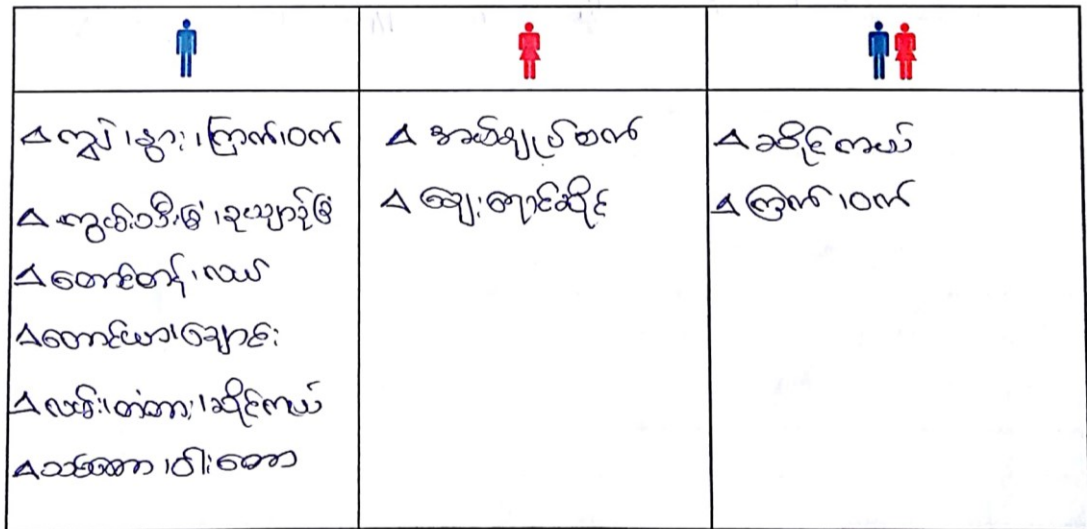 △ ကျွဲ၊နွား၊ကြက်၊ဝက်
△ ကွမ်းသီးခြံ၊ဒူးယျာဉ်ခြံ
△ တောင်တန်း၊လယ်
△ တောင်ယာ၊ချောင်း
△ လမ်း၊တံတား၊ဆိုင်ကယ်
△ သစ်တော၊ဝါးတော
△ အပ်ချုပ်စက်
△ ဈေးရောင်းဆိုင်
△ ဆိုင်ကယ်
△ ကြက်၊ဝက်